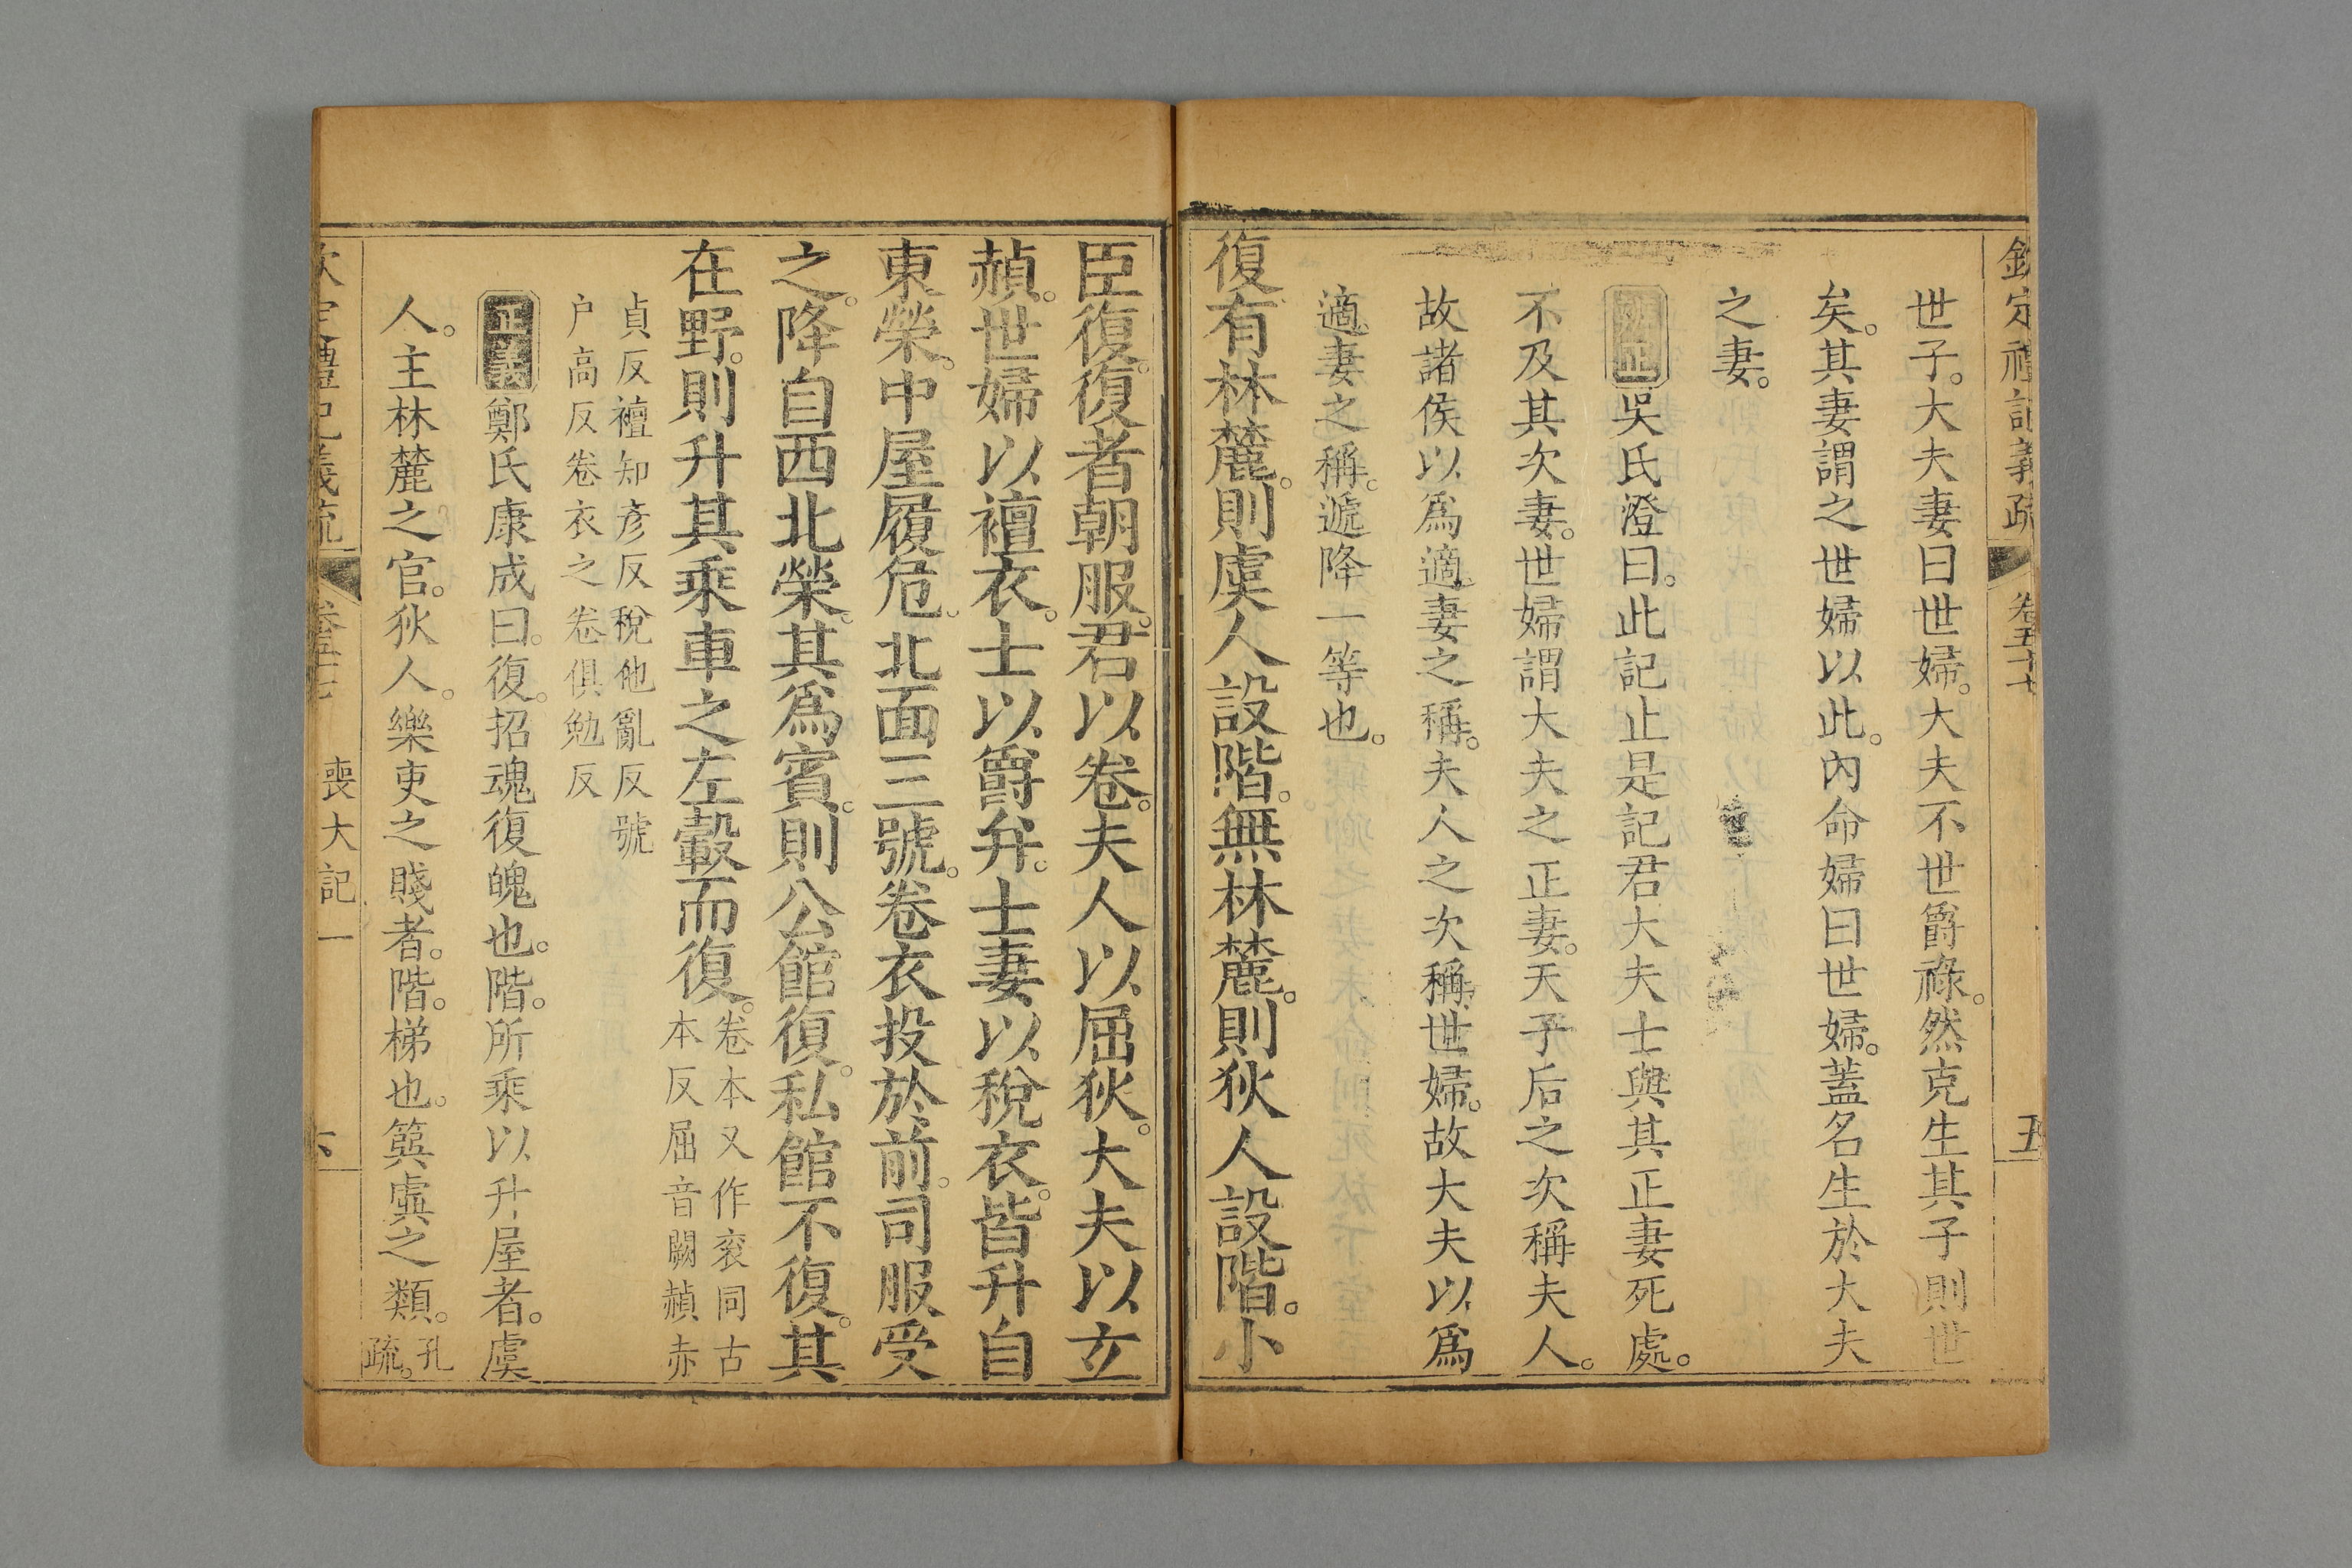 欽定禮記義疏 卷五十七 五
世子。大夫妻曰世婦。大夫不世爵祿。然克生其子則世
矣。其妻謂之世婦以此。內命婦曰世婦。蓋名生於大夫
之妻。
辨正吳氏澄曰。此記止是記君大夫士與其正妻死處。
不及其次妻。世婦謂大夫之正妻。天子后之次稱夫人。
故諸侯以爲適妻之稱。夫人之次稱世婦。故大夫以爲
適妻之稱。遞降一等也。
復有林麓。則虞人設階。無林麓。則狄人設階。小
臣復。復者朝服。君以卷。夫人以屈狄。大夫以玄
赬。世婦以襢衣。士以爵弁。士妻以稅衣。皆升自
東榮。中屋履危。北面三號。卷衣投於前。司服受
之。降自西北榮。其爲賓。則公館復。私館不復。其
在野。則升其乘車之左轂而復。卷本又作衮同古
本反屈音闕赬赤
貞反襢知彥反稅他亂反號
户高反卷衣之卷俱勉反
正義鄭氏康成曰。復。招魂復魄也。階。所乘以升屋者。虞
人。主林麓之官。狄人。樂吏之賤者。階。梯也。簨虡之類。孔
疏。
欽定禮記義疏 卷五十七 喪大記一 六